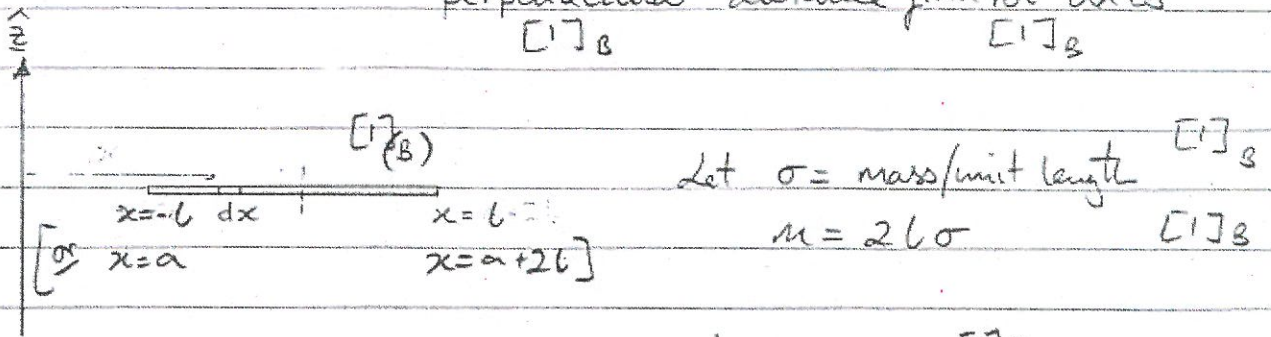 perpendicular distance from the axis
[1]B [1]B
ẑ
[1](B) [1]B
Let σ = mass/unit length
x=-l dx x=l
m = 2lσ [1]B
[or x=a x=a+2l]